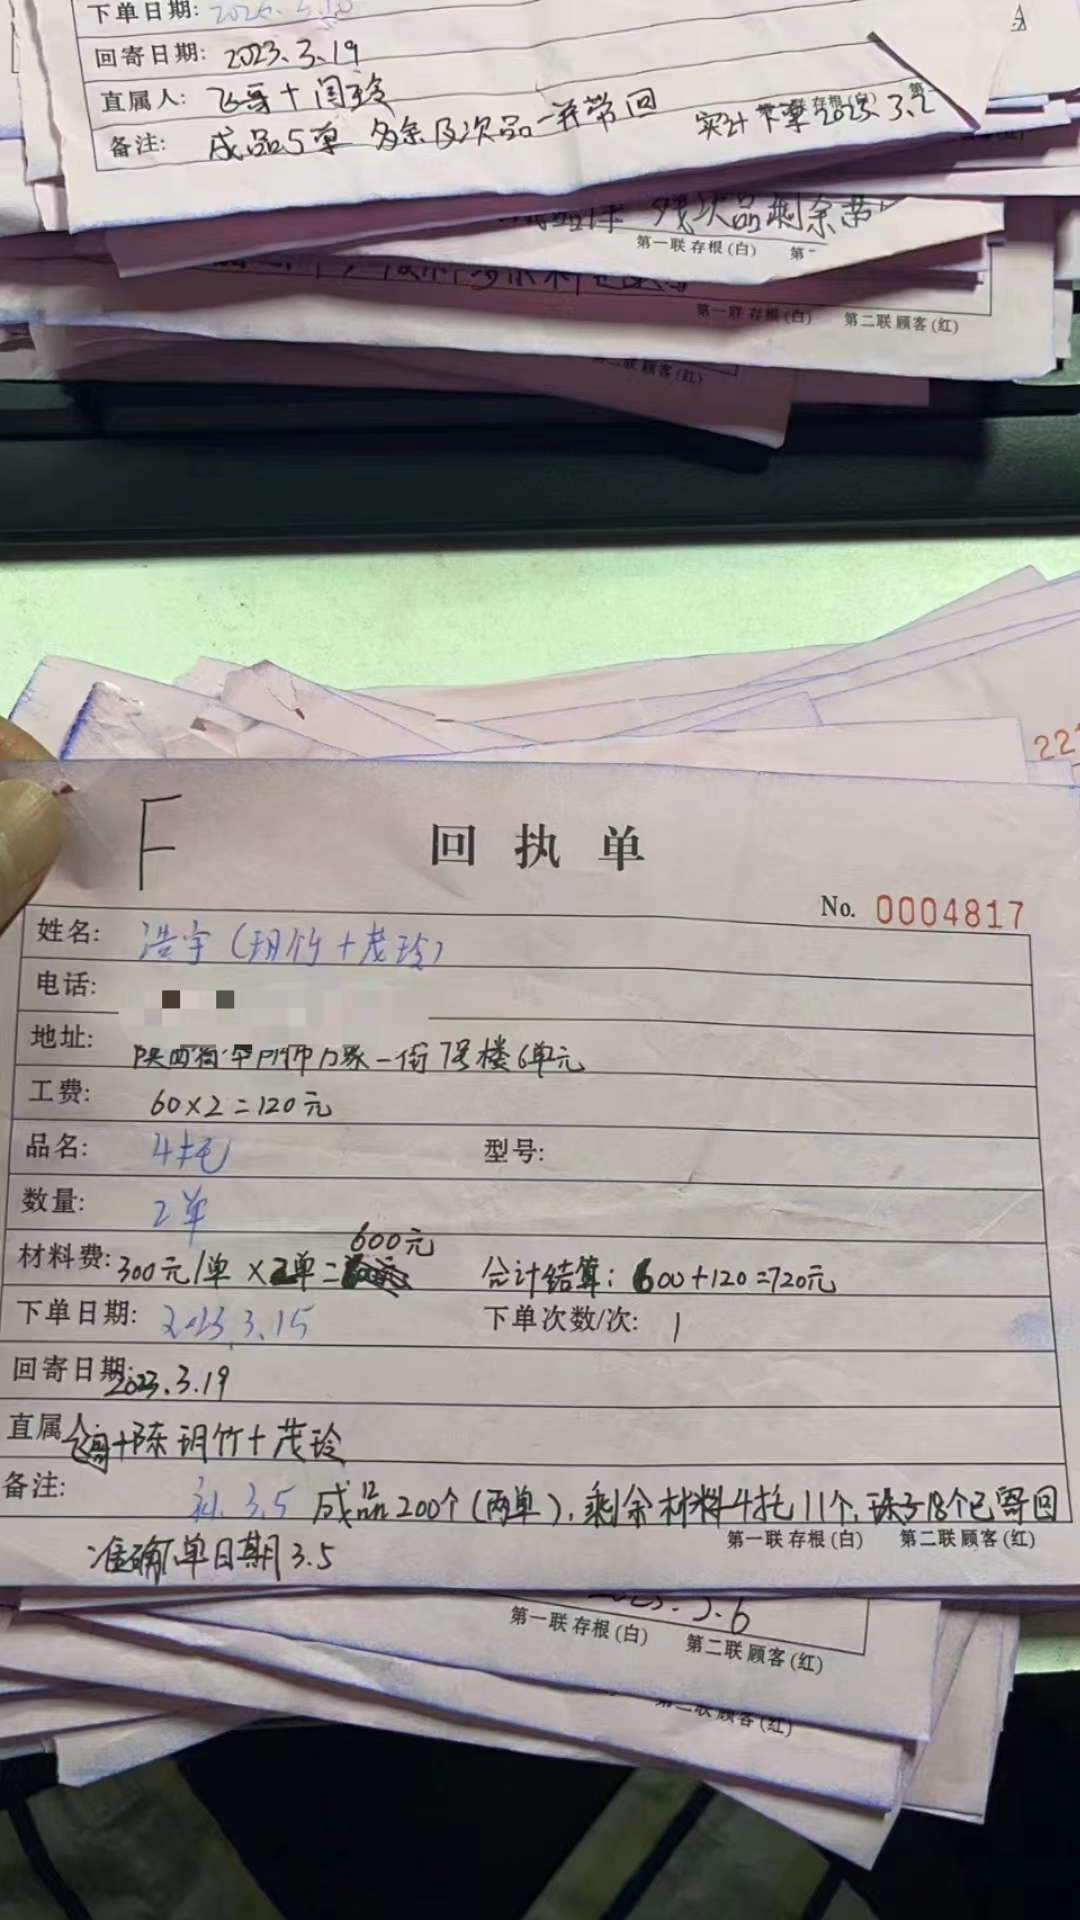 下单日期:
回寄日期: 2023.3.19
直属人: 飞哥+闫玲
备注: 成品5单 多余及次品一并带回 实计下单2023.3.2
残次品剩余带
第一联 存根(白) 第
第一联 存根(白) 第二联 顾客(红)
联 顾客(红)
22
F
回执单
No. 0004817
姓名: 浩宇(玥竹+茂玲)
电话:
地址: 陕西省 一街7号楼6单元
工费: 60×2=120元
品名: 4托 型号:
数量: 2单
600元
材料费: 300元/单×2单= 合计结算: 600+120=720元
下单日期: 2023.3.15 下单次数/次: 1
回寄日期: 2023.3.19
直属人 飞哥+陈玥竹+茂玲
备注: 3.5 成品200个(两单),剩余材料4托11个,珠子18个已寄回
12
第一联 存根(白) 第二联 顾客(红)
准确下单日期3.5
3.6
第一联 存根(白) 第二联 顾客(红)
第二联 顾客(红)